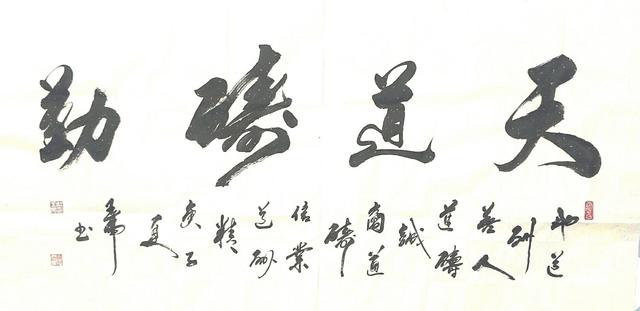 天道酬勤
地道
酬
善人
道酬
誠
商道
酬
信業
道酬
精
夏
书